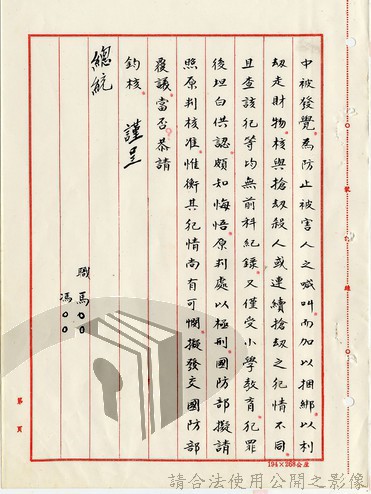 中被發覺為防止被害人之喊叫而加以捆綁以利
劫走財物核與搶劫殺人或連續搶劫之犯情不同
且查該犯等均無前科紀錄又僅受小學教育犯罪
後坦白供認頗知悔悟原判處以極刑國防部擬請
照原判核准惟衡其犯情尚有可憫擬發交國防部
覆議當否恭請
鈞核 謹呈
總統
職 馬○○
馮○○
第 頁
194×268公厘
請合法使用公開之影像